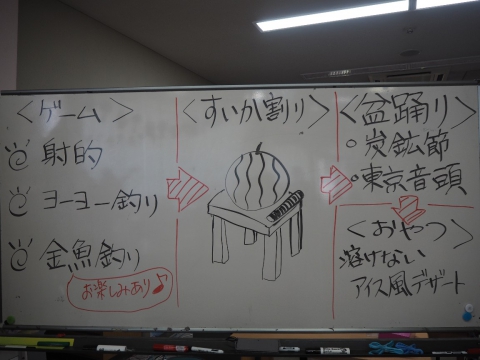 ＜ゲーム＞
射的
ヨーヨー釣り
金魚釣り
お楽しみあり♪
＜すいか割り＞
＜盆踊り＞
・炭鉱節
・東京音頭
＜おやつ＞
溶けない
アイス風デザート